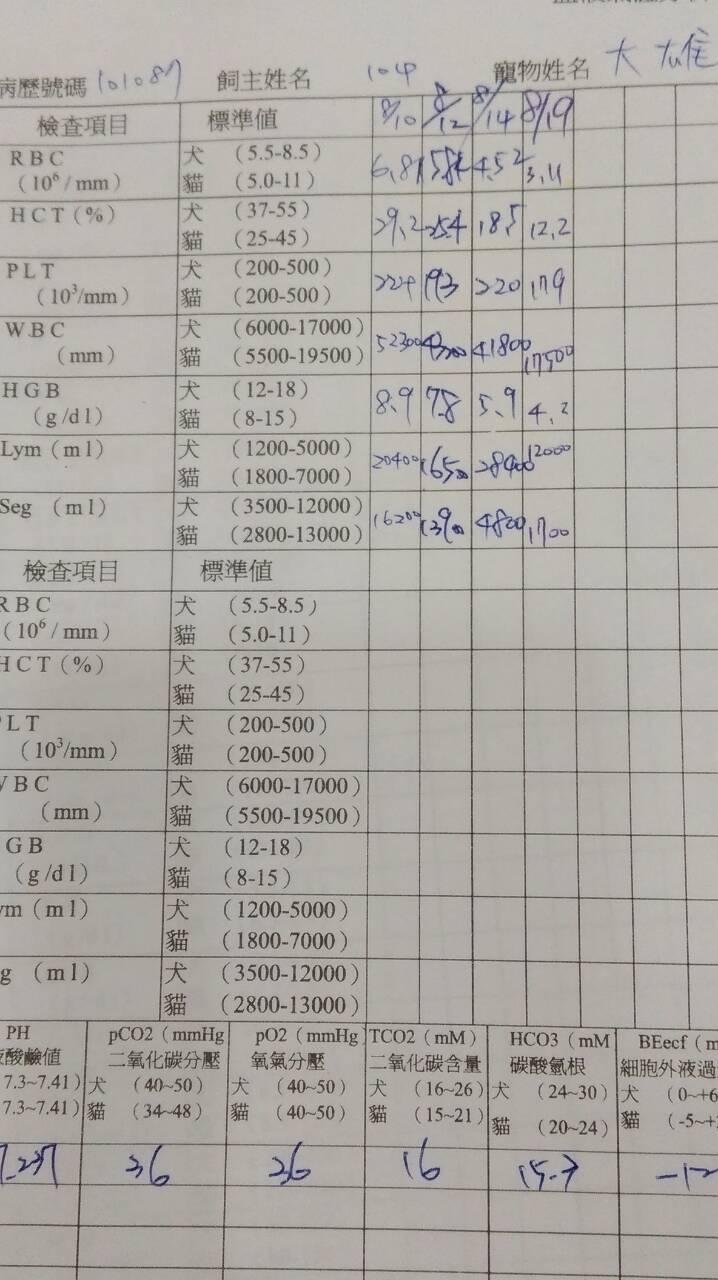 病歷號碼 101087 飼主姓名 104 寵物姓名 大雄
檢查項目 標準值 8/10 8/12 8/14 8/19
RBC 犬 (5.5-8.5) 6.81 5.84 4.52 3.11
(10⁶/mm) 貓 (5.0-11)
HCT(%) 犬 (37-55) 29.2 25.4 18.5 12.2
貓 (25-45)
PLT 犬 (200-500) 224 193 220 179
(10³/mm) 貓 (200-500)
WBC 犬 (6000-17000) 52300 41800 17500
(mm) 貓 (5500-19500)
HGB 犬 (12-18) 8.9 7.8 5.9 4.2
(g/dl) 貓 (8-15)
Lym(ml) 犬 (1200-5000) 20400 16500 28400 12000
貓 (1800-7000)
Seg (ml) 犬 (3500-12000) 16200 13900 4800 1700
貓 (2800-13000)
檢查項目 標準值
RBC 犬 (5.5-8.5)
(10⁶/mm) 貓 (5.0-11)
HCT(%) 犬 (37-55)
貓 (25-45)
PLT 犬 (200-500)
(10³/mm) 貓 (200-500)
WBC 犬 (6000-17000)
(mm) 貓 (5500-19500)
GB 犬 (12-18)
(g/dl) 貓 (8-15)
ym(ml) 犬 (1200-5000)
貓 (1800-7000)
g (ml) 犬 (3500-12000)
貓 (2800-13000)
PH pCO2(mmHg pO2(mmHg TCO2(mM) HCO3(mM BEecf(m
酸鹼值 二氧化碳分壓 氧氣分壓 二氧化碳含量 碳酸氫根 細胞外液過
7.3~7.41) 犬 (40~50) 犬 (40~50) 犬 (16~26) 犬 (24~30) 犬 (0~+6
7.3~7.41) 貓 (34~48) 貓 (40~50) 貓 (15~21) 貓 (20~24) 貓 (-5~+
7.237 36 26 16 15.7 -12